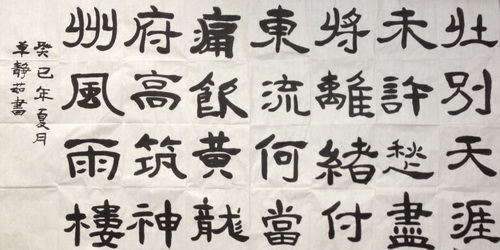 壮別天涯
未許愁盡
將離緒付
東流何當
痛飲黄龍
府高筑神
州風雨樓
癸巳年夏月
卓靜茹書